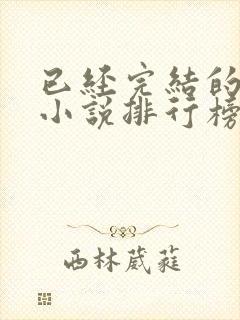 已經完結的
小說排行榜
西林葳蕤